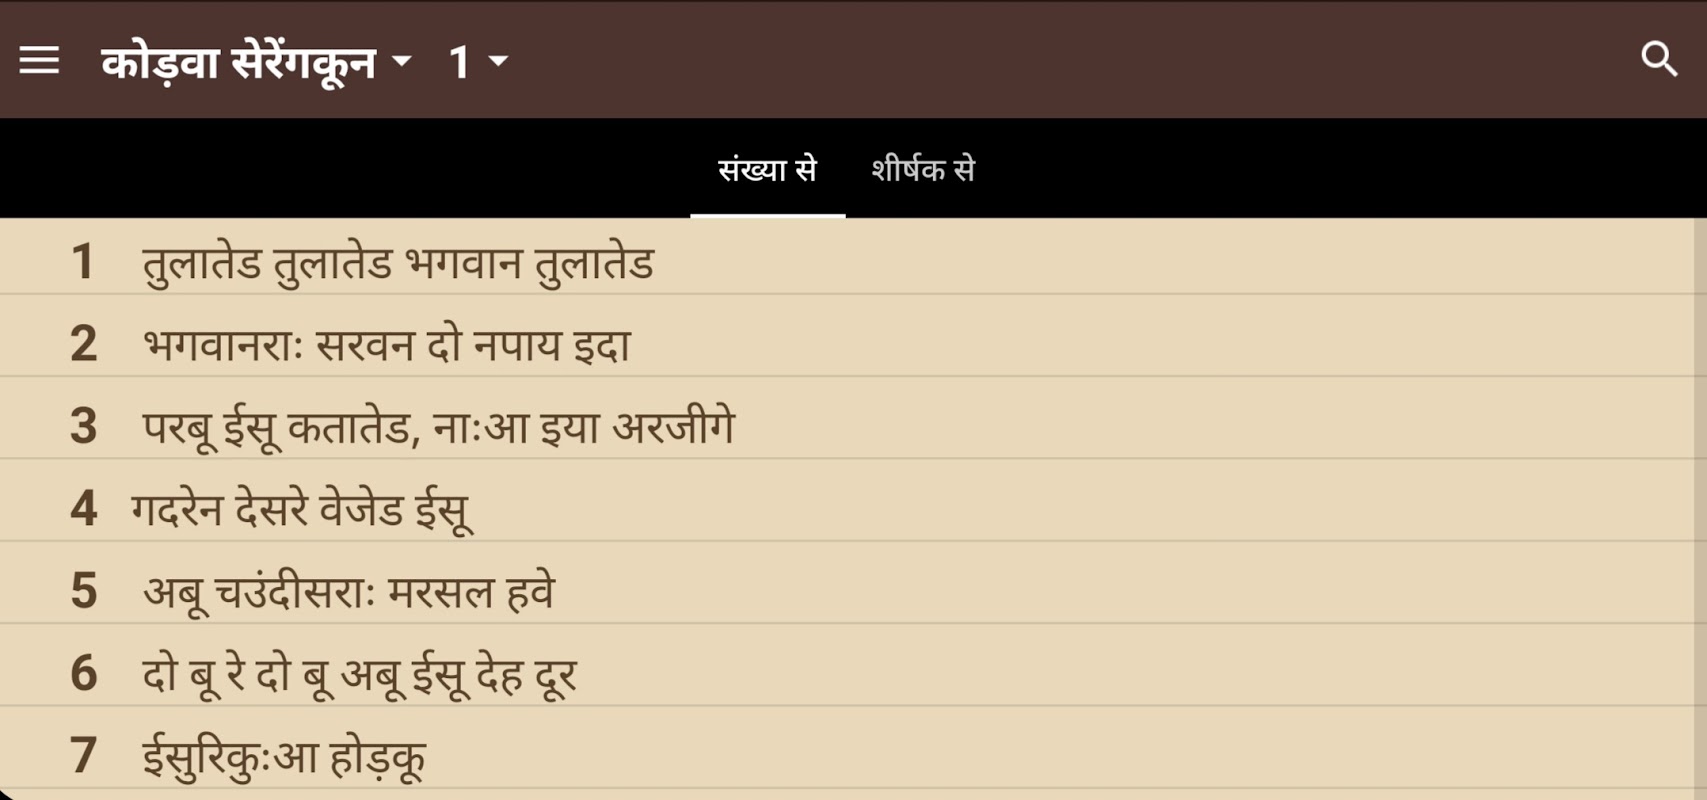 कोड़वा सेरेंगकून 1
संख्या से शीर्षक से
1 तुलातेड तुलातेड भगवान तुलातेड
2 भगवानराः सरवन दो नपाय इदा
3 परबू ईसू कतातेड, नाःआ इया अरजीगे
4 गदरेन देसरे वेजेड ईसू
5 अबू चउंदीसराः मरसल हवे
6 दो बू रे दो बू अबू ईसू देह दूर
7 ईसुरिकुःआ होड़कू